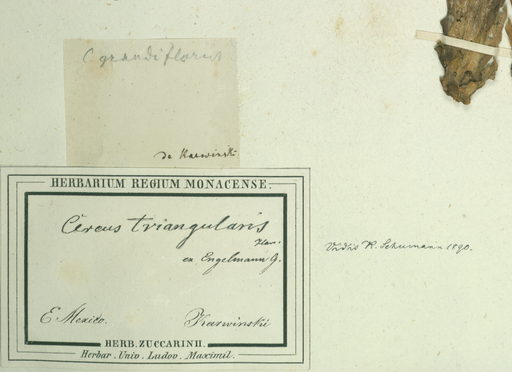 C grandiflorus
de Karwinski
HERBARIUM REGIUM MONACENSE.
Cereus triangularis
Haw.
en Engelmann G.
E Mexico. Karwinskii
HERB. ZUCCARINII.
Herbar. Univ. Ludov. Maximil.
Vidit K. Schumann 1890.